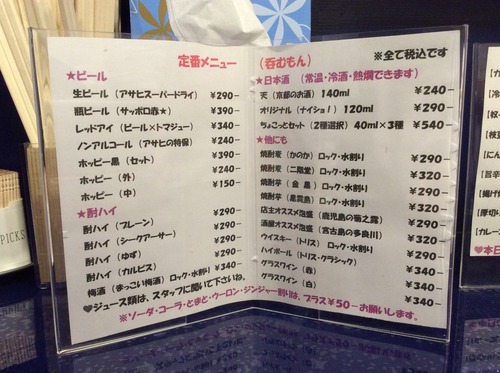 定番メニュー
★ビール
生ビール（アサヒスーパードライ） ¥290−
瓶ビール（サッポロ赤★） ¥390−
レッドアイ（ビール×トマジュー） ¥340−
ノンアルコール（アサヒの特保） ¥290−
ホッピー黒（セット） ¥390−
ホッピー（外） ¥240−
ホッピー（中） ¥150−
★酎ハイ
酎ハイ（プレーン） ¥290−
酎ハイ（シークアーサー） ¥290−
酎ハイ（ゆず） ¥290−
酎ハイ（カルピス） ¥290−
梅酒（まっこい梅酒）ロック・水割り ¥340−
♥ジュース類は、スタッフに聞いて下さいね。
（呑むもん） ※全て税込です
★日本酒（常温・冷酒・熱燗できます）
天（京都のお酒）140ml ¥240−
オリジナル（ナイショ！）120ml ¥290−
ちょこっとセット（2種選択）40ml×3種 ¥540−
★他にも
焼酎麦（かのか）ロック・水割り ¥290−
焼酎麦（二階堂）ロック・水割り ¥320−
焼酎芋（金黒）ロック・水割り ¥290−
焼酎芋（黒霧島）ロック・水割り ¥320−
店主オススメ泡盛（鹿児島の菊之露） ¥290−
酒屋オススメ泡盛（宮古島の多良川） ¥320−
ウイスキー（トリス）ロック・水割り ¥290−
ハイボール（トリス・クラシック） ¥290−
グラスワイン（赤） ¥340−
グラスワイン（白） ¥340−
※ソーダ・コーラ・とまと・ウーロン・ジンジャー割りは、プラス¥50−お願いします。
PICKS
♥本日